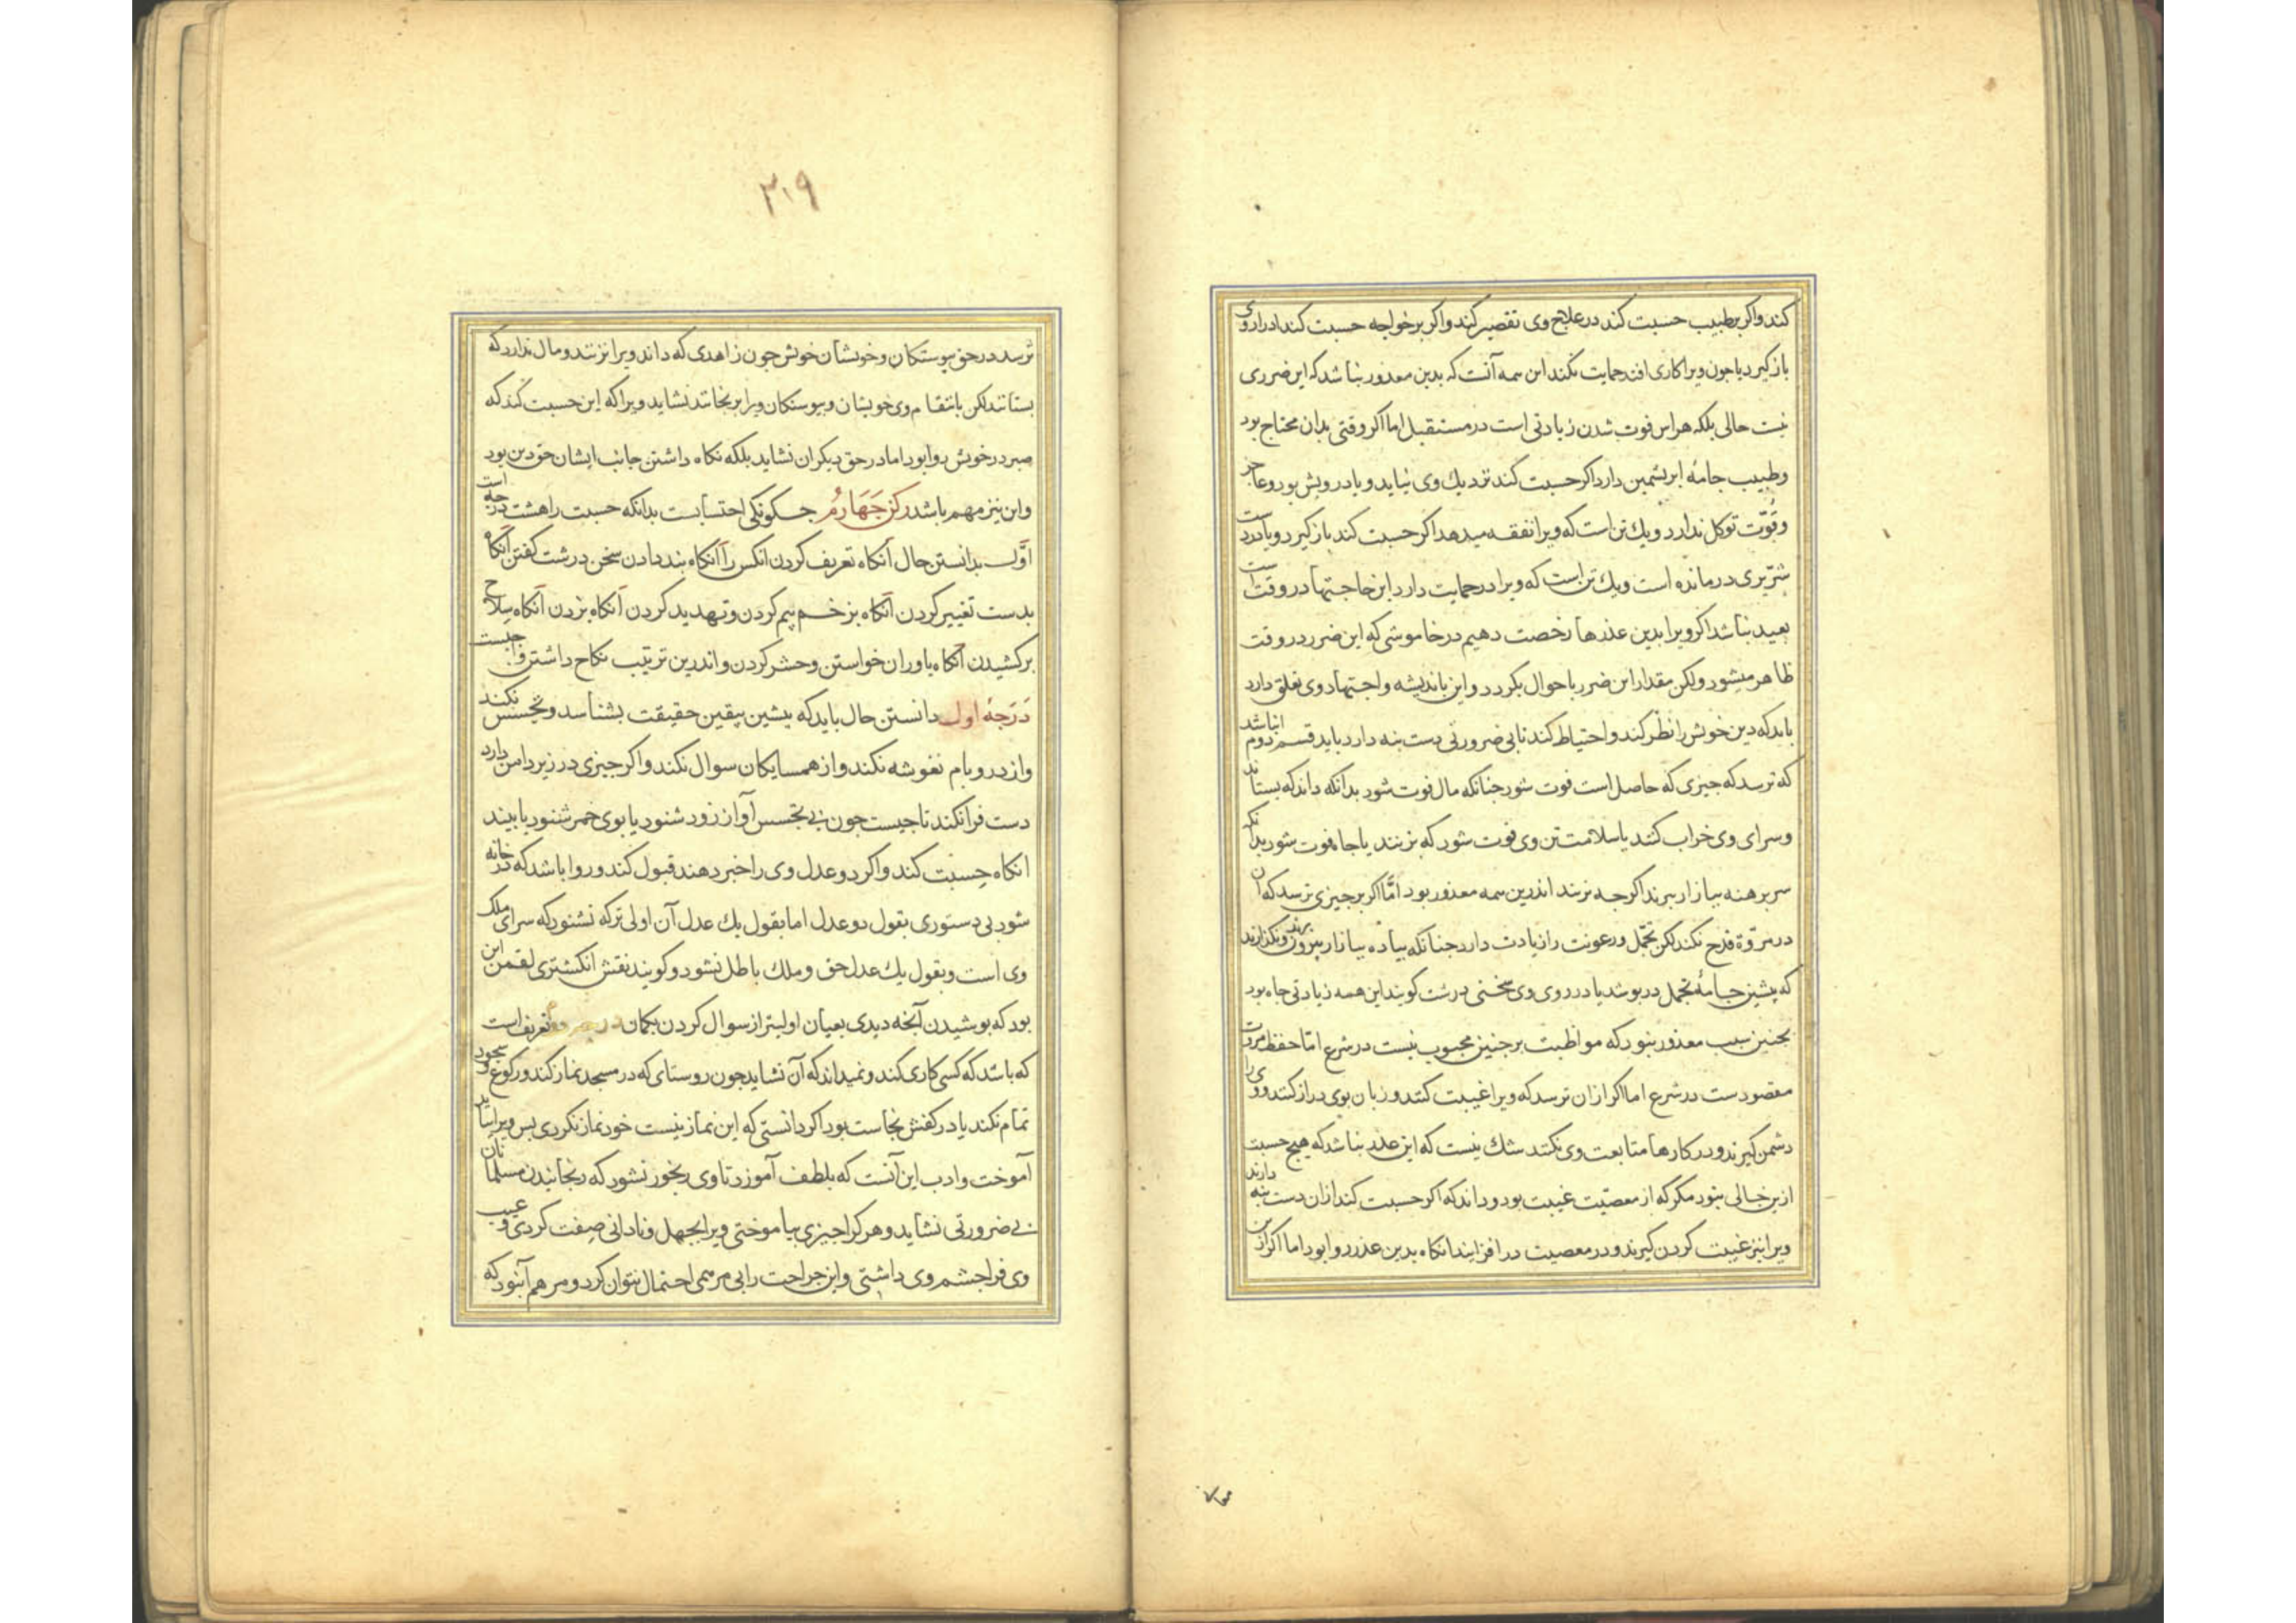 کند واکر بر طبیب حسبت کند در علاج وی تقصیر کند واکر بر خواجه حسبت کند ادرار وی
باز کیرد یا جون ویرا کاری افتد حمایت نکند این همه آنست که بدین معذور نباشد که این ضرری
نیست حالی بلکه هراس فوت شدن زیادتی است در مستقبل اما اکر وقتی بدان محتاج بود
وطبیب جامهٔ ابریشمین دارد اکر حسبت کند نزدیك وی نیاید ویا درویش بود وعاجز
وقوّت توکل ندارد ویك تن است که ویرا نفقه میدهد اکر حسبت کند باز کیرد ویا در دست
شرّیری درمانده است ویك تن است که ویرا در حمایت دارد این حاجتها در وقت است
بعید نباشد اکر ویرا بدین عذرها رخصت دهیم در خاموشی که این ضرر در وقت
ظاهر میشود ولکن مقدار این ضرر باحوال بکردد واین باندیشه واجتهاد وی تعلق دارد
باید که دین خویش را نظر کند واحتیاط کند تا بی ضرورتی دست بنه دارد باید قسم دوم انباشد
که ترسد که جیزی که حاصل است فوت شود جنانکه مال فوت شود بدانکه داند که بستانند
وسرای وی خراب کنند یا سلامت تن وی فوت شود که بزنند یا جاه فوت شود بدانکه
سر برهنه ببازار برند اکرجه نزنند اندرین همه معذور بود امّا اکر بر جیزی ترسد که آن
در مروّة قدح نکند لکن تجمّل ورعونت را زیادت دارد جنانکه بیاده ببازار بیرون برند ونکذارند
که بیشین جامهٔ تجمل دربوشد یا در روی وی سخنی درشت کویند این همه زیادتی جاه بود
بجنین سبب معذور نبود که مواظبت بر جنین محبوب نیست در شرع امّا حفظ مروت
مقصودست در شرع اما اکر ازان ترسد که ویرا غیبت کنند وزبان بوی دراز کنند ووی را
دشمن کیرند ودر کارها متابعت وی نکنند شك نیست که این عذر نباشد که هیچ حسبت
ازین خالی نبود مکر که از معصیّت غیبت بود وداند که اکر حسبت کند ازان دست بنه دارند
ویرا نیز غیبت کردن کیرند ودر معصیت در افزایند انکاه بدین عذر روا بود اما اکر ازین
٣١٩
ترسد در حق بیوستکان وخویشان خویش جون زاهدی که داند ویرا نزنند ومال ندارد که
بستانند لکن بانتقام وی خویشان وبیوستکان ویرا برنجانند نشاید ویرا که این حسبت کند که
صبر در خویش روا بود اما در حق دیکران نشاید بلکه نکاه داشتن جانب ایشان حق دین بود
واین نیز مهم باشد رکن جَهَارمُ جکونکی احتسابست بدانکه حسبت را هشت درجه است
اوّل بدانستن حال آنکاه تعریف کردن انکس را آنکاه بند دادن سخن درشت کفتن آنکاه
بدست تغییر کردن آنکاه بزخم بیم کردن وتهدید کردن آنکاه بزدن آنکاه سلاح
برکشیدن آنکاه یاوران خواستن وحشر کردن واندرین ترتیب نکاح داشتن واجبست
دَرَجهٔ اول دانستن حال باید که بیشین بیقین حقیقت بشناسد وتجسس نکند
واز در وبام نغوشه نکند واز همسایکان سوال نکند واکر جیزی در زیر دامن دارد
دست فرا نکند تا جیست جون بی تجسس آواز رود شنود یا بوی خمر شنود یا بیند
انکاه حِسبت کند واکر دو عدل وی را خبر دهند قبول کند وروا باشد که در خانه
شود بی دستوری بقول دو عدل اما بقول یك عدل آن اولی تر که نشنود که سرای ملک
وی است وبقول یك عدل حق وملك باطل نشود وکویند نقش انکشتری لقمن این
بود که بوشیدن آنجه دیدی بعیان اولیتر از سوال کردن بکمان در تعریف است
که باشد که کسی کاری کند ونمیداند که آن نشاید جون روستای که در مسجد نماز کند ورکوع وسجود
تمام نکند یا در کفش نجاست بود اکر دانستی که این نماز نیست خود نماز نکردی بس ویرا بباید
آموخت وادب این آنست که بلطف آموزد تا وی رنجور نشود که رنجانیدن مسلمانان
بی ضرورتی نشاید وهر کرا جیزی بیاموختی ویرا بجهل ونادانی صِفت کردی وعیب
وی فرا جشم وی داشتی واین جراحت را بی مرهمی احتمال نتوان کرد ومرهم آن بود که